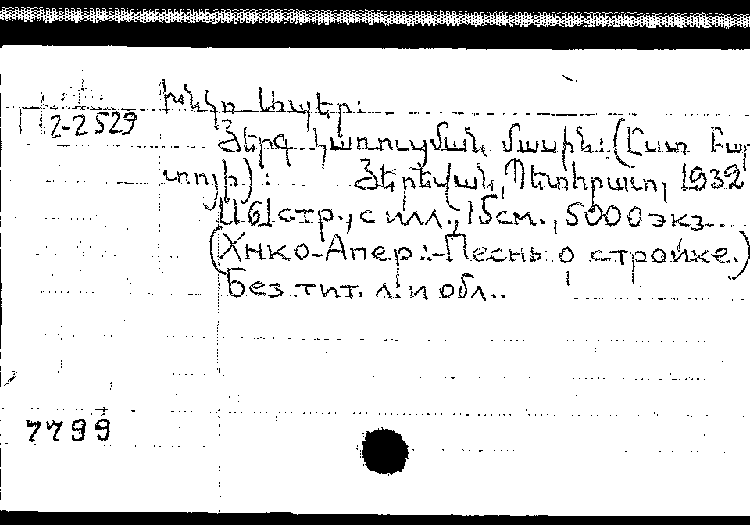 Խնկո Ապեր:
2-2529
Յերգ կառուցման մասին: (Ըստ Բար
տոյի): Յերեվան, Պետհրատ, 1932
16 стр., с илл., 15см., 5000 экз
(Хнко-Апер.-Песнь о стройке.)
Без тит. л. и обл..
7799